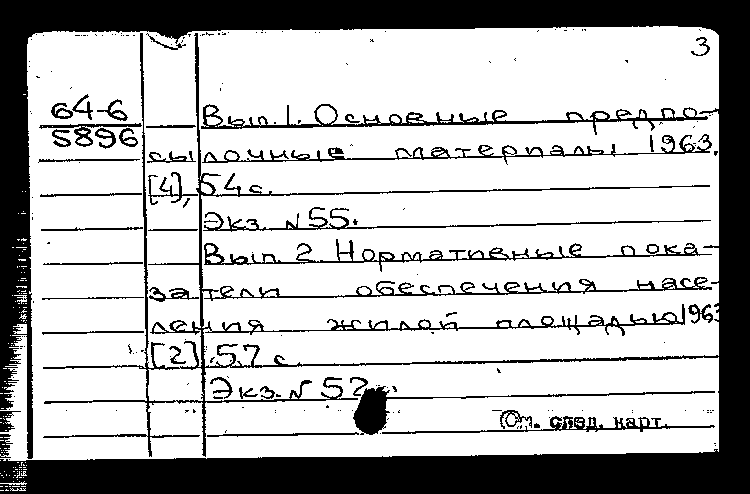 3
64-6
5896
Вып. 1. Основные предпо-
сылочные материалы 1963.
[4], 54 с.
Экз. № 55.
Вып. 2 Нормативные пока-
затели обеспечения насе-
ления жилой площадью 1963
[2] 57 с.
Экз. № 52
См. след. карт.